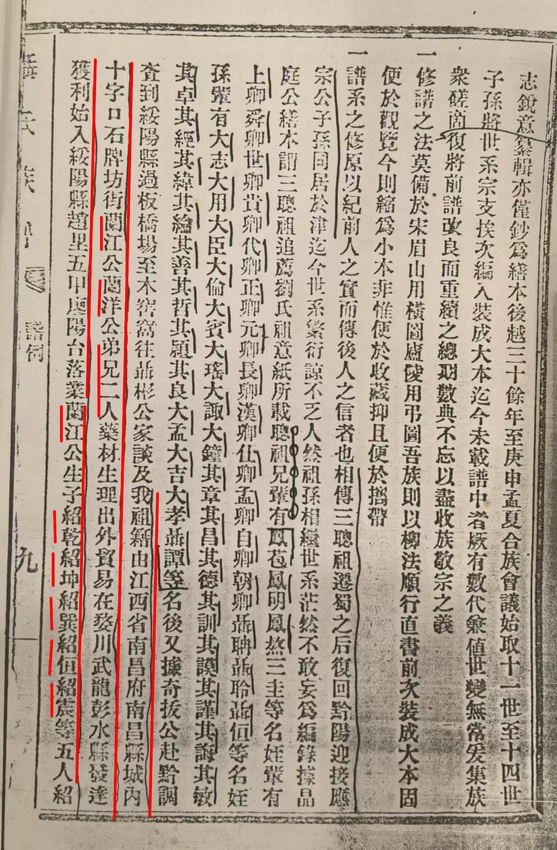 志銳意纂輯亦僅鈔爲繕本後越三十餘年至庚申孟夏合族會議始取十一世至十四世
子孫將世系宗支挨次編入裝成大本迄今未載譜中者厥有數代兼值世變無常爰集族
衆磋商復將前譜改良而重續之總期數典不忘以盡收族敬宗之義
一修譜之法莫備於宋眉山用橫圖廬陵用弔圖吾族則以柳法順行直書前次裝成大本因
便於觀覽今則縮爲小本非惟便於收藏抑且便於攜帶
一譜系之修原以紀前人之實而傳後人之信者也相傳三聰祖遷蜀之后復回黔陽迎接應
宗公子孫同居於津迄今世系繁衍諒不乏人然祖孫相繼世系茫然不敢妄爲編錄據晶
庭公繕本謂三聰祖追薦劉氏祖意紙所載聰祖兄輩有鳳苞鳳明鳳熬三圭等名姪輩有
上卿舜卿世卿貴卿代卿正卿元卿長卿漢卿仕卿孟卿自卿朝卿聶聃聶聆聶恒等名姪
孫輩有大志大用大臣大倫大賓大瑤大諏大鐘其章其昌其德其訓其謨其謹其誨其敏
其卓其經其緯其綸其善其哲其穎其良大孟大吉大孝聶譚等名後又據奇拔公赴黔調
查到綏陽縣過板橋場至木窖窩往聶彬公家談及我祖籍由江西省南昌府南昌縣城內
十字口石牌坊街蘭江公蘭洋公弟兄二人藥材生理出外貿易在婺川武龍彭水縣發達
獲利始入綏陽縣趙里五甲慶陽台落業蘭江公生子紹乾紹坤紹巽紹恒紹震等五人紹
氏族
譜例
九